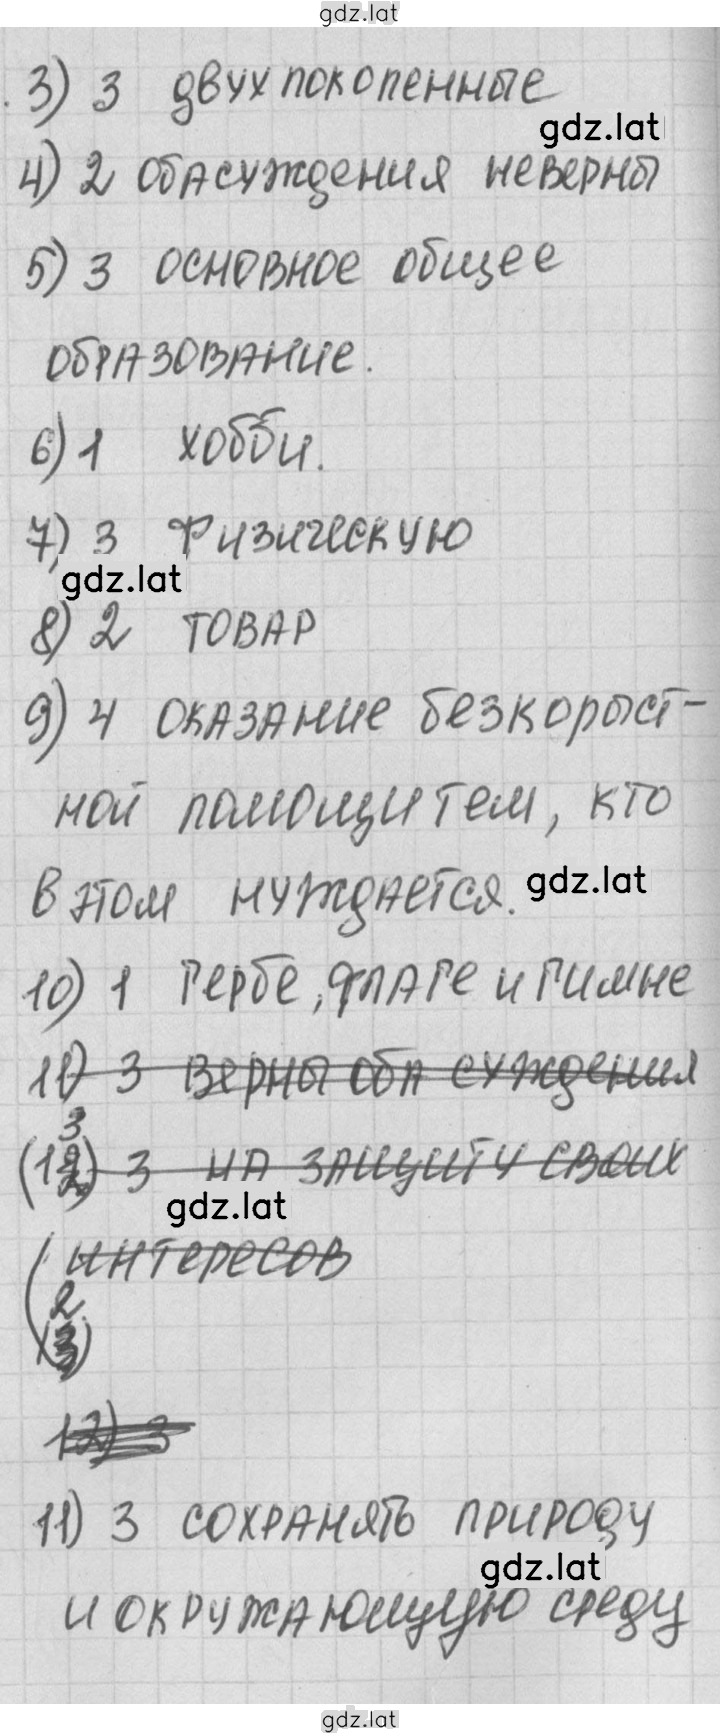 gdz.lat
3) 3 двухпокопенные
gdz.lat
4) 2 оба суждения неверны
5) 3 основное общее
образование.
6) 1 хобби.
7) 3 физическую
gdz.lat
8) 2 товар
9) 4 оказание безкорыст-
ной помощи тем, кто
в этом нуждается.
gdz.lat
10) 1 гербе, флаге и гимне
11) 3 верны оба суждения
3) 3 на защиту своих
gdz.lat
интересов
2
12) 3
11) 3 сохранять природу
gdz.lat
и окружающую среду
gdz.lat